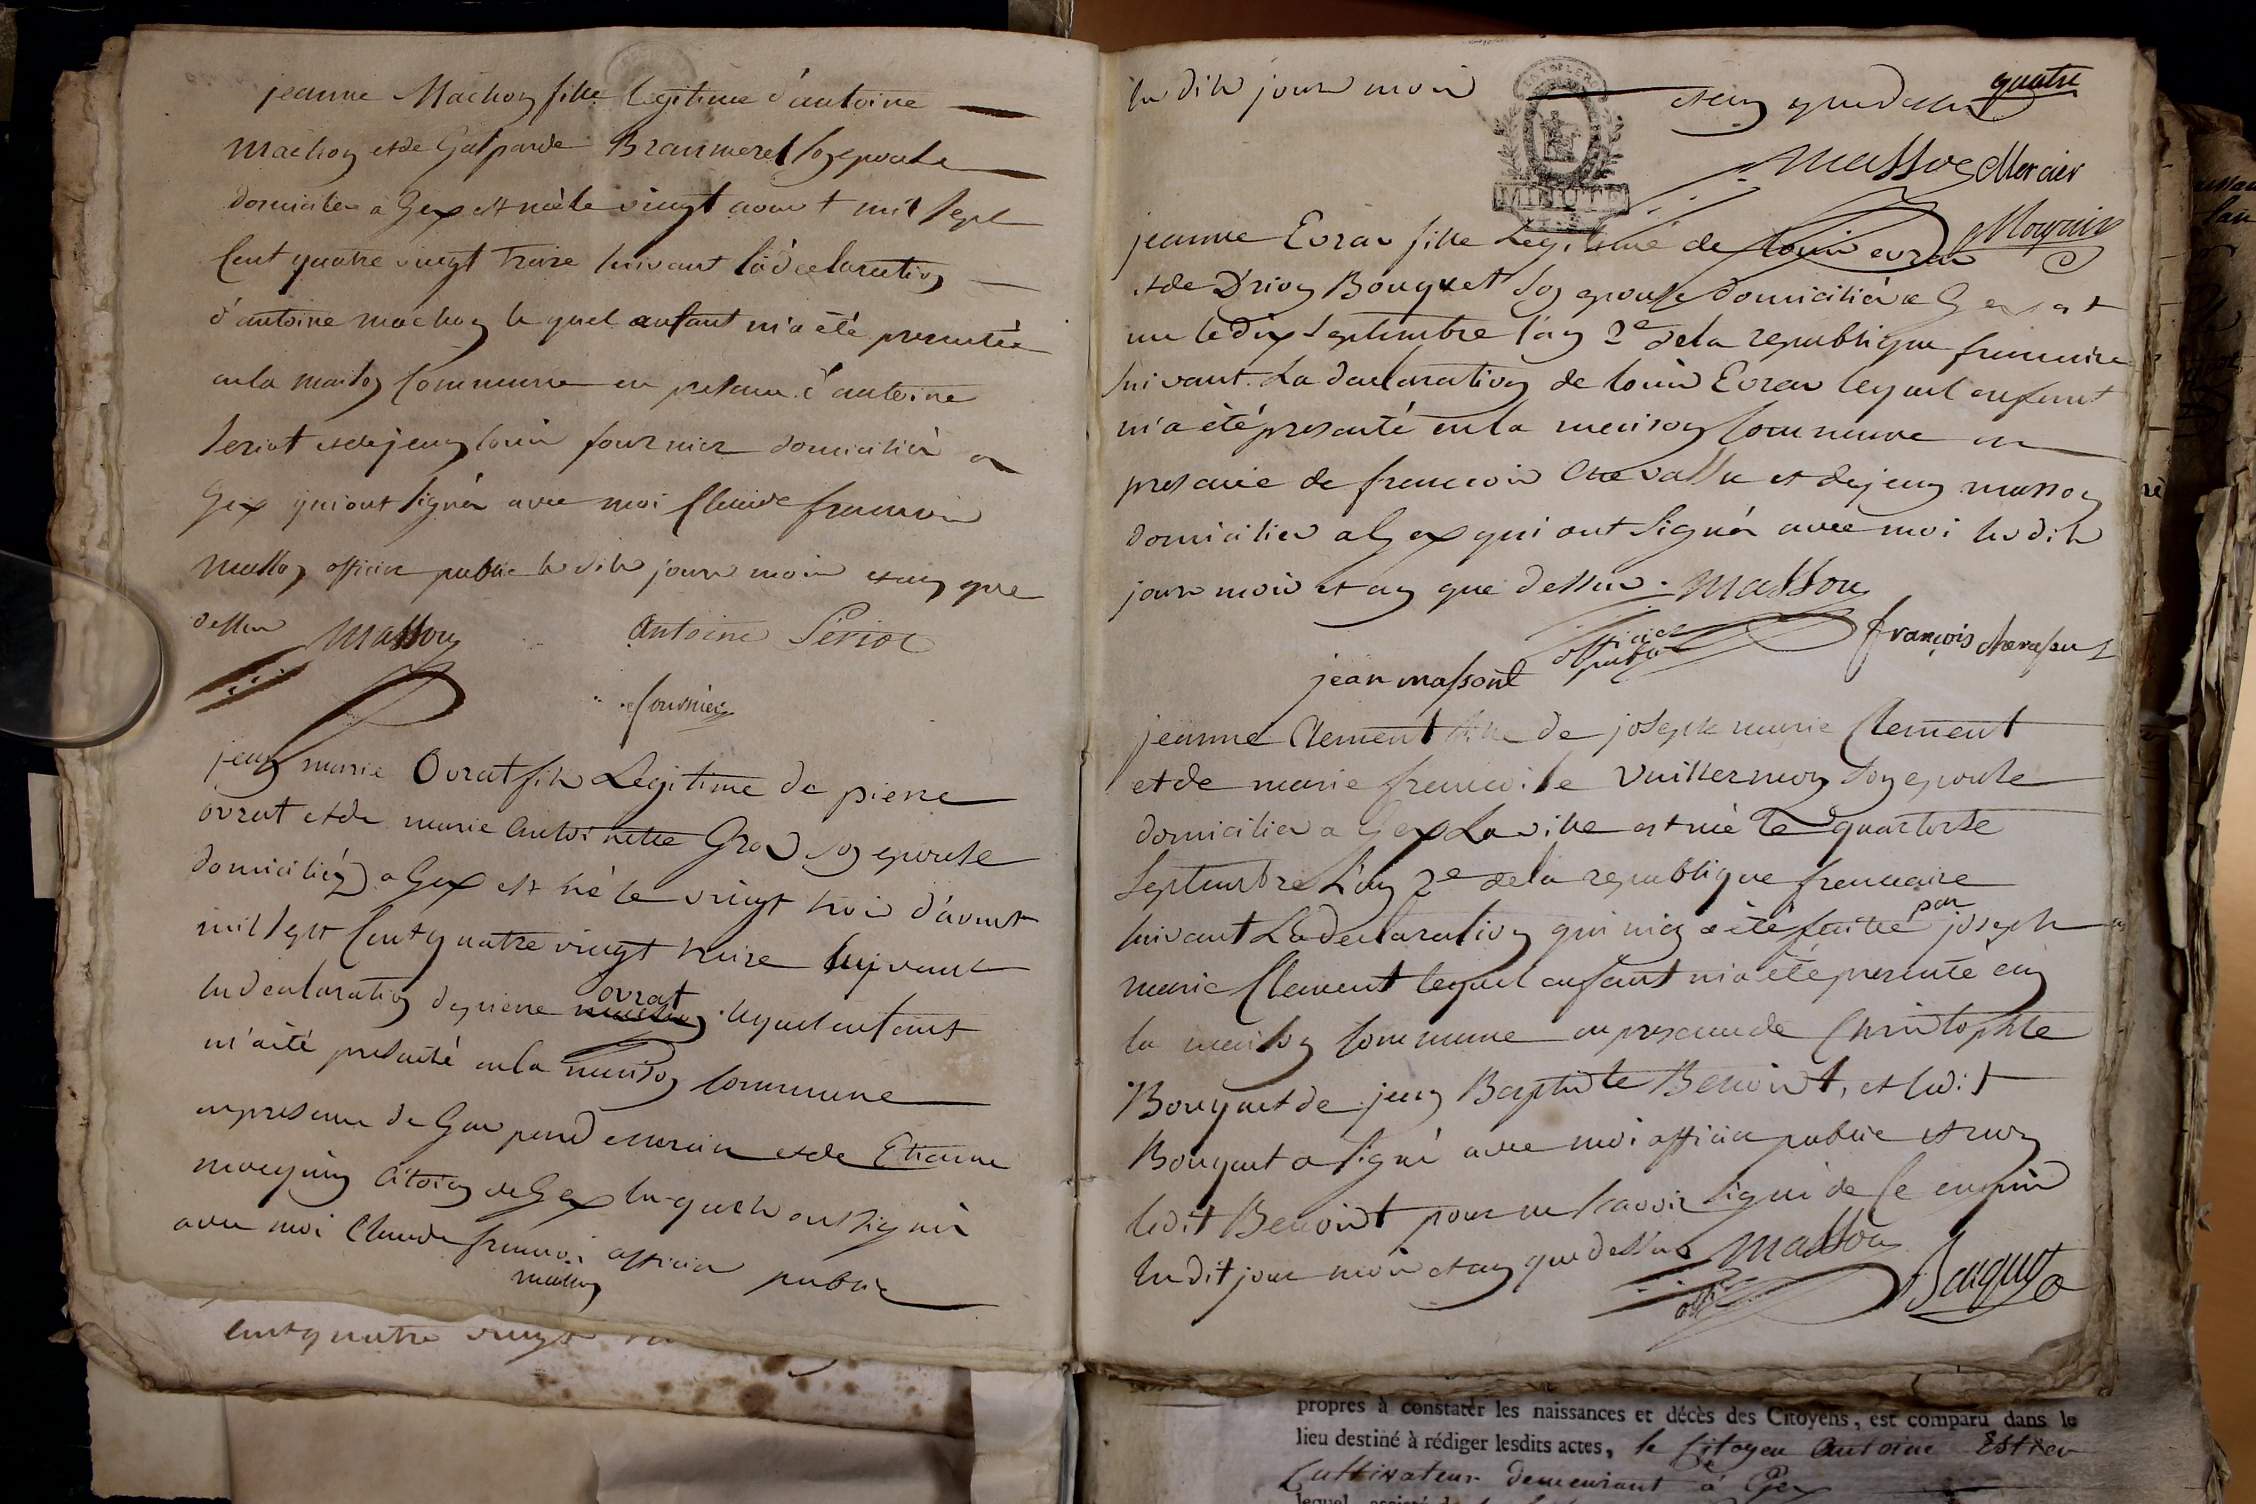 jeanne Machon fille legitime d'antoine
Machon et de Gasparde Branmerel son epouse
domicilies a Gex est née le vingt aout mil sept
cent quatre vingt treize suivant la declaration
d'antoine machon le quel enfant m'a été presentée
en la maison commune en presence d'antoine
Seriot et de jean louis fournier domiciliés a
Gex qui ont signés avec moi Claude francois
masson officier public lesdits jours mois et an que
dessus Masson Antoine Seriot
fournier
jean marie Ovrat fils Legitime de pierre
ovrat et de marie antoinette Gros son epouse
domiciliéz a Gex est né le vingt trois d'aout
mil sept cent quatre vingt treize suivant
la declaration de pierre ovrat lequel enfant
m'a été presenté en la maison commune
en presence de et de Etienne
mougnin citoien de Gex lesquels ont signés
avec moi Claude francoi masson officier public
cent quatre vingt
quatre
lesdits jours mois et an que dessus
MINUTE
Masson Mercier
Mougnin
jeanne Evrav fille Legitime de louis evrav
et de Bouquet son epouse domiciliés a Gex est
née le dix septembre l'an 2e de la republique francaise
suivant la declaration de louis Evrav lequel enfant
m'a été presenté en la maison commune en
presence de francois chevassu et de jean masson
domiciliés a Gex qui ont signés avec moi lesdits
jours mois et an que dessus. Masson
officier public françois chevassu
jean masson
jeanne Clement fille de joseph marie Clement
et de marie francoise Vuillermoz son epouse
domiciliés a Gex La ville est née le quatorse
septembre L'an 2e de la republique francaise
suivant La declaration qui m'en a été faitte par joseph
marie Clement lequel enfant m'a été presenté en
la maison commune en presence de Christophle
Bouquet de jean Baptiste Benoist, et ledit
Bouquet a signé avec moi officier public et non
ledit Benoist pour ne savoir signé de ce enquis
lesdit jour mois et an que dessus Masson
off Bouquet
propres à constater les naissances et décès des Citoyens, est comparu dans le
lieu destiné à rédiger lesdits actes, le Citoyen Antoine Estier
Cultivateur demeurant à Gex